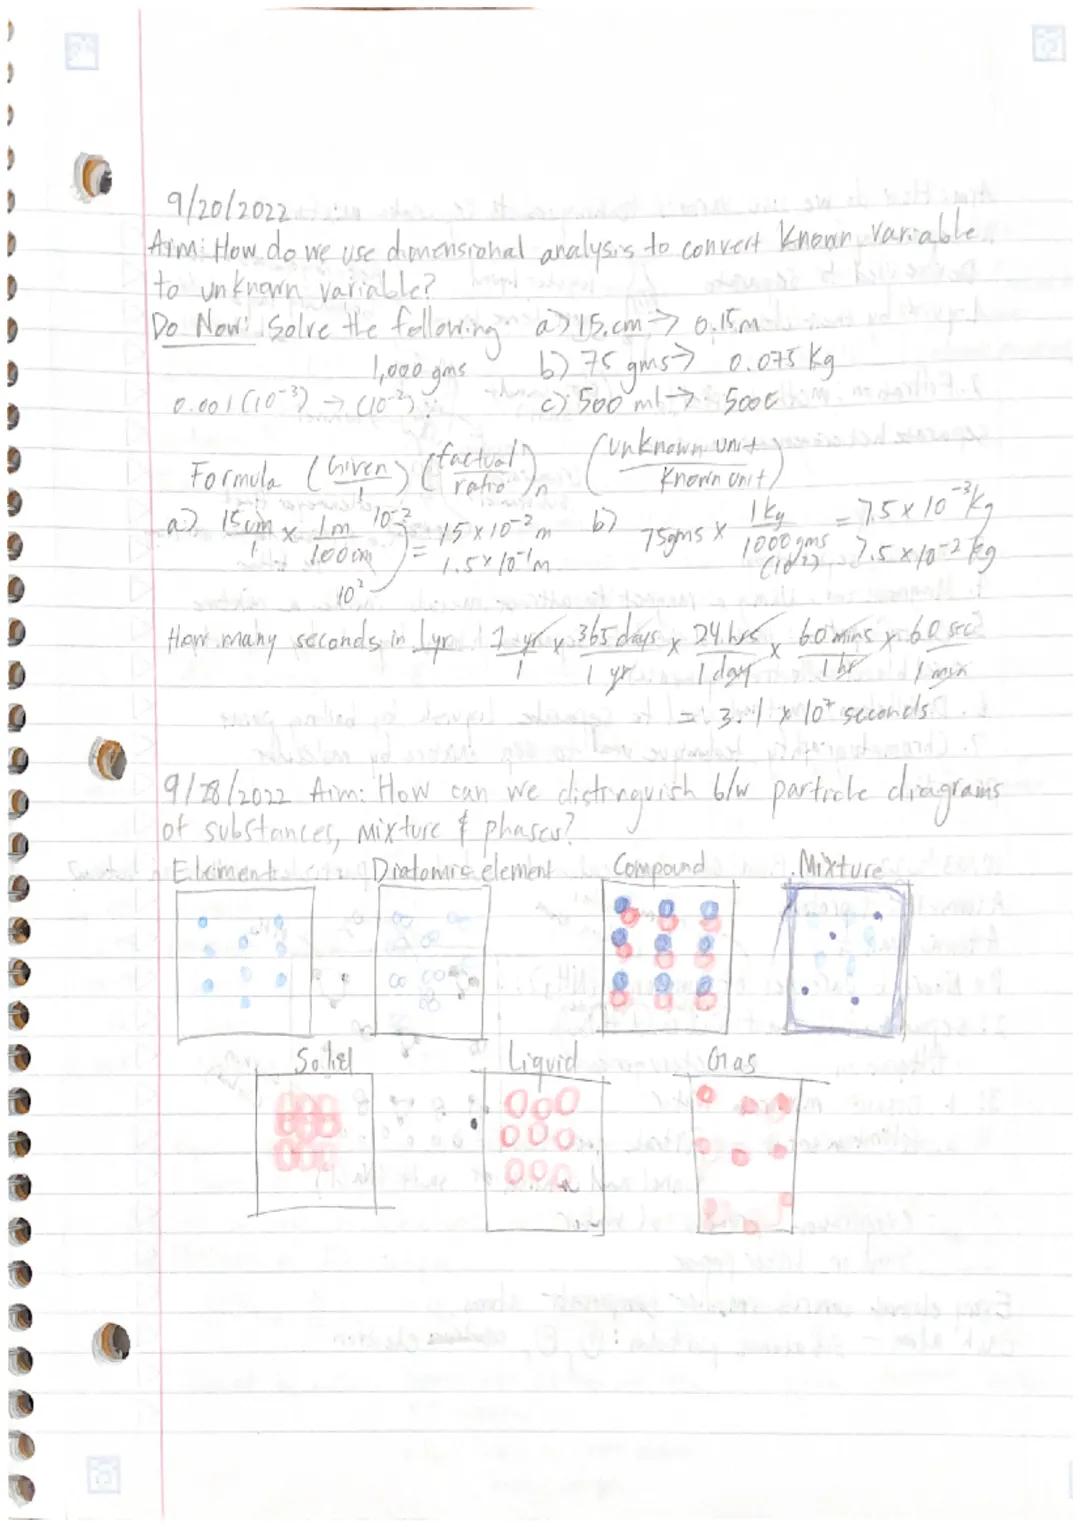 9/20/2022
Aim: How do we use dimensional analysis to convert known variable
to unknown variable?
Do Now: Solve the following a) 15.cm → 0.15m
1,000 gms b) 75 gms → 0.075 kg
0.001 (10⁻³) → (10⁻²) c) 500 ml →
Formula (Given / 1) (factual / ratio)n (unknown unit / known unit)
a) 15cm / 1 × 1m / 100cm 10⁻² = 15 × 10⁻² m b) 75gms × 1 kg / 1000 gms = 7.5 × 10⁻³ kg
10² 1.5 × 10⁻¹ m 7.5 × 10⁻² kg
How many seconds in 1yr 1 yr / 1 × 365 days / 1 yr × 24 hrs / 1 day × 60 mins / 1 hr × 60 sec / 1 min
= 3.1 × 10⁷ seconds
9/28/2022 Aim: How can we distinguish b/w particle diagrams
of substances, mixture & phases?
Element Diatomic element Compound Mixture
Solid Liquid Gas